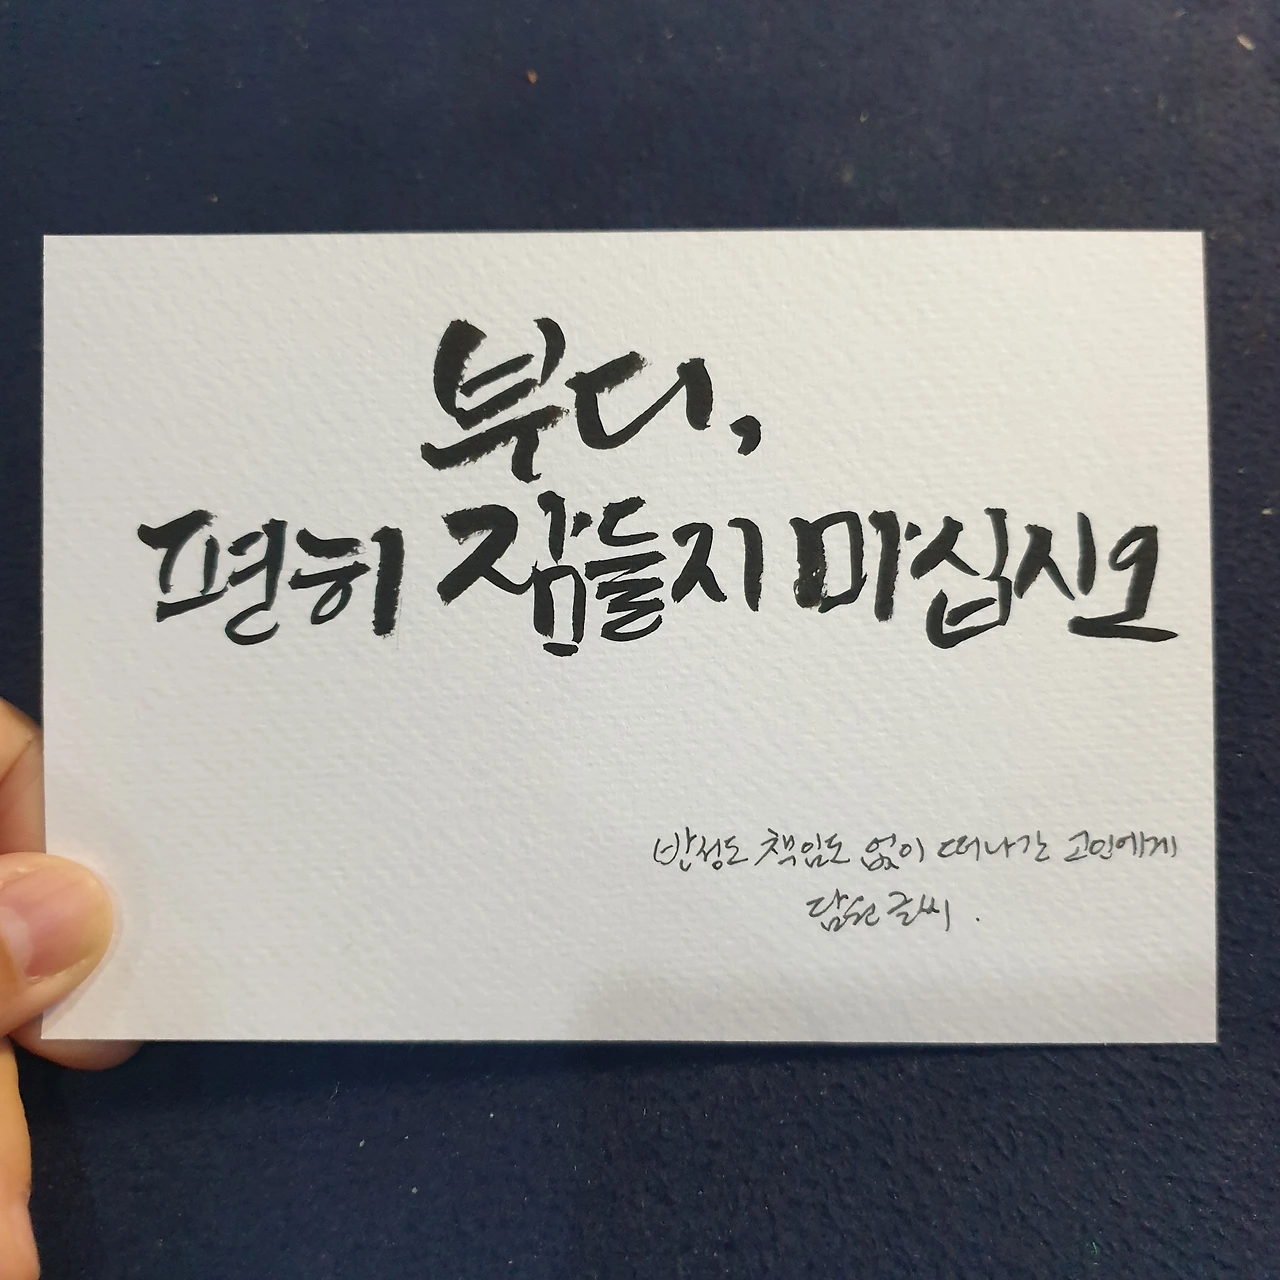 부디,
편히 잠들지 마십시오
반성도 책임도 없이 떠나간 고인에게
글씨.